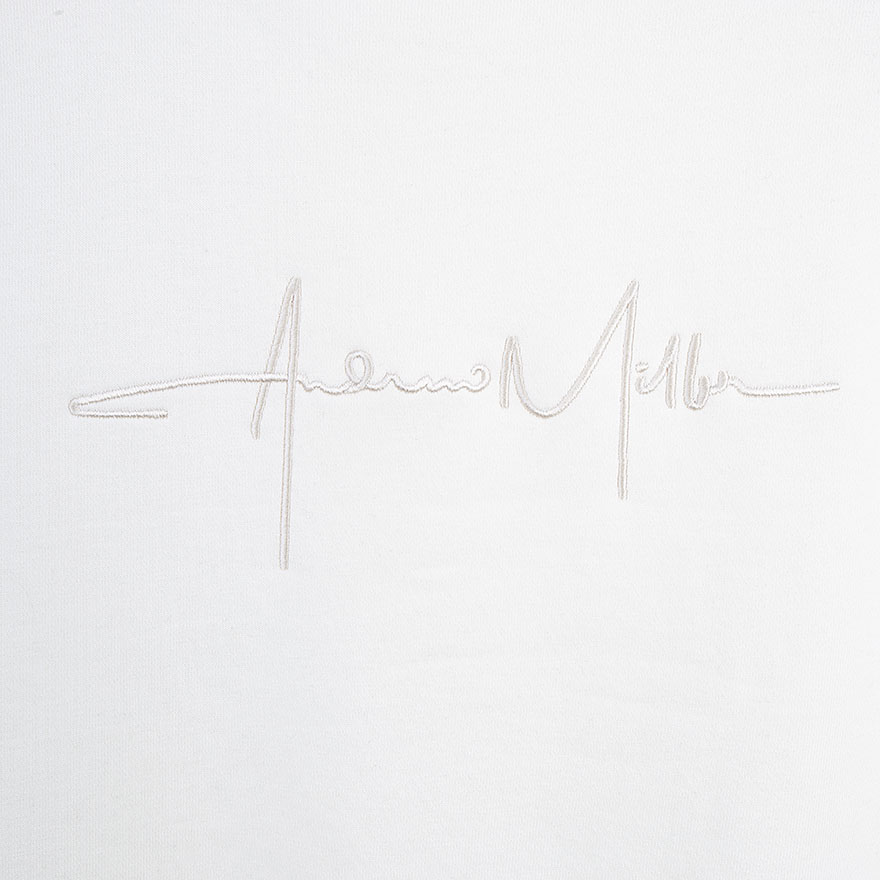 Andrew Miller